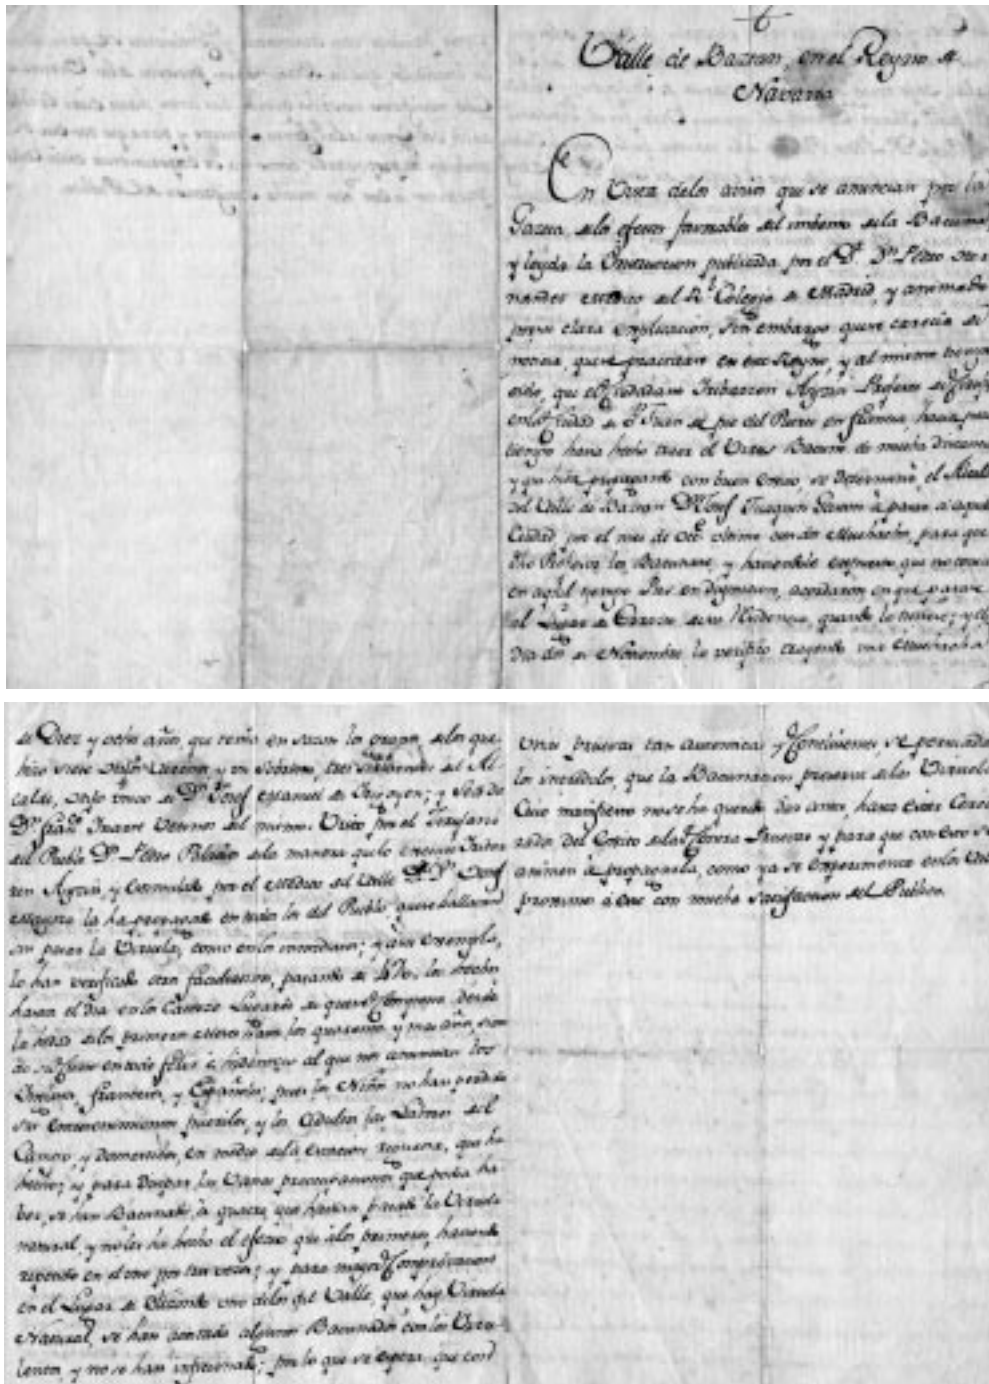 Valle de Baztan, en el Reyno de
Navarra
En Vista delos avisos que se anuncian por la
Gazeta, delos efectos favorables del imbento dela Bacuna,
y leyda la Instruccion publicada por el Dr. Dn. Pedro Her
nandez Medico del Rl. Colegio de Madrid, y animado
por su clara explicacion, sin embargo que se carecia de
noticia, que se practicase en este Reyno, y al mismo tiempo
oido, que el Ciudadano Iribarren Professor
en la Ciudad de Sn. Juan de pie del Puerto en Francia, hacia poco
tiempo havia hecho traer el Virus Bacuno de mucha distancia
y que havia propagado con buen exito, se determinó el Alcalde
del Valle de Baztan Dn. Josef Joaquin á pasar á aquella
Ciudad, por el mes de Octe. ultimo con dos Muchachos, para que
dho Profesor los Bacunase, y haviendole expuesto que no tenia
en aquel tiempo Pus en disposicion, acordaron en que pasase
al Lugar de su Residencia, quando lo tuviese; y el
dia dos de Noviembre lo verifico trayendo una Muchacha
de Diez y ocho años, que tenia en sazon los granos, delos que
hizo siete y en tres del Al
calde, hijo unico de Dn. Josef Manuel de Irigoyen; y seis de
Dn. Franco. Vecinos del mismo. Visto por el Cirujano
del Pueblo Dn. Pedro la manera que lo Iribar
ren y estimulado por el Medico del Valle Dn. Josef
la ha propagado en todos los del Pueblo, que se hallavan
sin pasar la Viruela, como en los inmediatos; y a su exemplo,
lo han verificado otros facultativos, pasando de los hechos
hasta el dia en los Catorce Lugares de que se compone desde
la hedad delos primeros meses hasta los quarenta y mas años, sien
do su suceso en todo feliz é identico al que nos anuncian los
Ingleses, Franceses, y Españoles; pues los Niños no han perdido
sus entretenimientos pueriles, y los Adultos las Labores del
Campo y domesticas, en medio dela estacion rigurosa, que ha
hecho; y para disipar las Vanas preocupaciones que podia ha
ber, se han Bacunado, á quatro que havian pasado la Viruela
natural, y no les ha hecho el efecto que alos primeros, haviendo
repetido en el uno por tres veces; y para mayor comprobacion
en el Lugar de Elizondo uno delos del Valle, que hay Viruela
Natural, se han acostado algunos Bacunados con los Viru
lentos, y no se han inficionado; por lo que se espera que con
unas pruevas tan autenticas y concluientes, se persuadan
los incredulos, que la Bacunacion, preserva delas Viruelas.
Cuio manifiesto no se ha querido dar antes, hasta estar Cerci
rado del Exito dela Pruevas y para que con esto se
animen á propagarla, como ya se experimenta en los Valles
proximos á este con mucha satisfaccion del Publico.